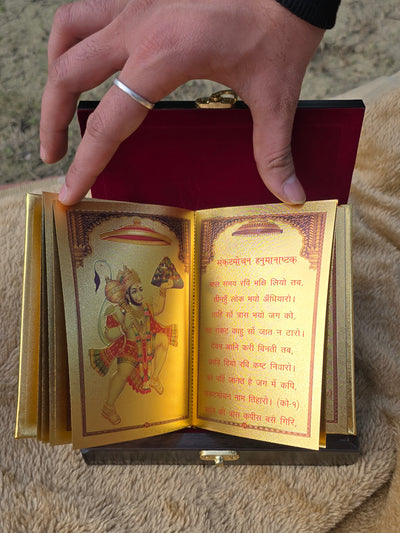 संकटमोचन हनुमानाष्टक
समय रवि भक्षि लियो तब,
तीनहुँ लोक भयो अँधियारो।
ताहि सों त्रास भयो जग को,
यह संकट काहु सों जात न टारो।
देवन आनि करी बिनती तब,
छाड़ि दियो रवि कष्ट निवारो।
को नहिं जानत है जग में कपि,
संकटमोचन नाम तिहारो। (को-१)
की त्रास कपीस बसै गिरि,